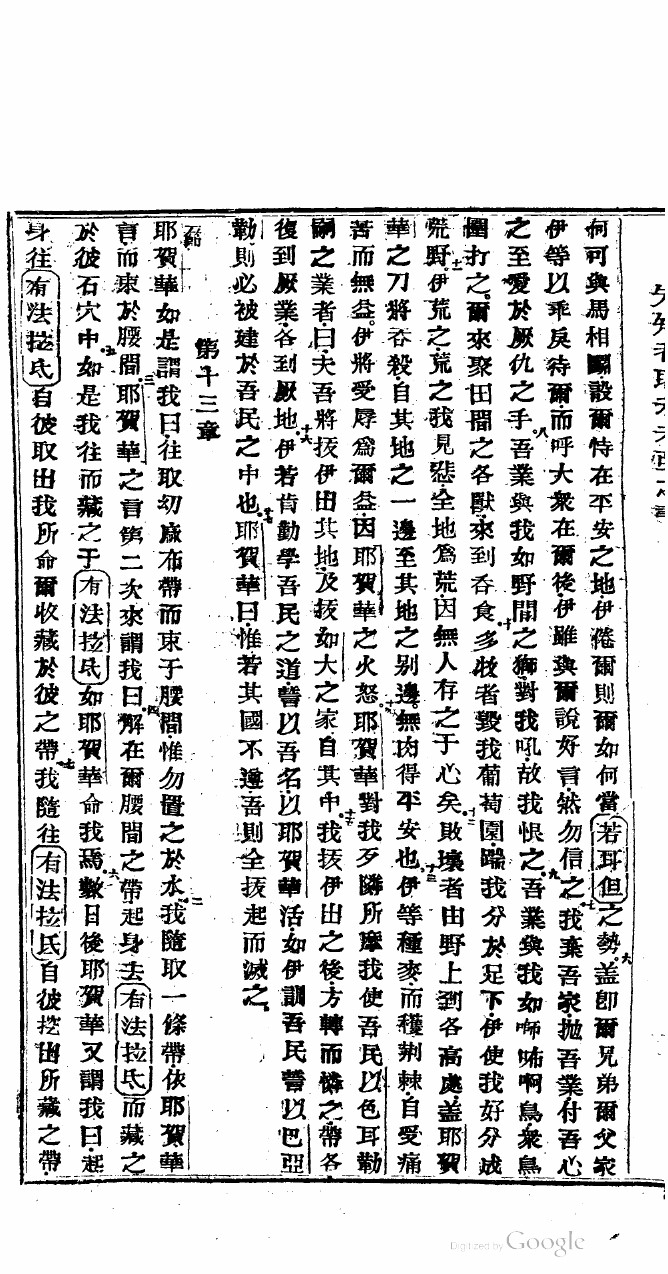 何可與馬相鬭設爾恃在平安之地伊倦爾則爾如何當若耳但之勢六蓋卽爾兄弟爾父家
伊等以乖戾待爾而呼大衆在爾後伊雖與爾說好言然勿信之七我棄吾家拋吾業付吾心
之至愛於厥仇之手八吾業與我如野間之獅對我吼故我恨之九吾業與我如嘶啼啊鳥衆鳥
圍打之爾來聚田間之各獸來到吞食十多牧者毀我葡萄園踹我分於足下伊使我好分成
荒野十一伊荒之荒之我見愁全地爲荒因無人存之于心矣十二敗壞者由野上到各高處蓋耶賀
華之刀將吞殺自其地之一邊至其地之别邊無肉得平安也十三伊等種麥而穫荆棘自受痛
苦而無益伊將受辱爲爾益因耶賀華之火怒十四耶賀華對我歹隣所摩我使吾民以色耳勒
嗣之業者曰夫吾將拔伊出其地及拔如大之家自其中十五我拔伊出之後方轉而憐之帶各
復到厥業各到厥地十六伊若肯勤學吾民之道誓以吾名以耶賀華活如伊訓吾民誓以巴亞
勒則必被建於吾民之中也十七耶賀華曰惟若其國不遵吾則全拔起而滅之
第十三章
一節 耶賀華如是謂我曰往取幼麻布帶而束于腰間惟勿置之於水二我隨取一條帶依耶賀華
言而束於腰間三耶賀華之言第二次來謂我曰四解在爾腰間之帶起身去有法拉氐而藏之
於彼石穴中五如是我往而藏之于有法拉氐如耶賀華命我焉六數日後耶賀華又謂我曰起
身往有法拉氐自彼取出我所命爾收藏於彼之帶七我隨往有法拉氐自彼挖出所藏之帶
Digitized by Google